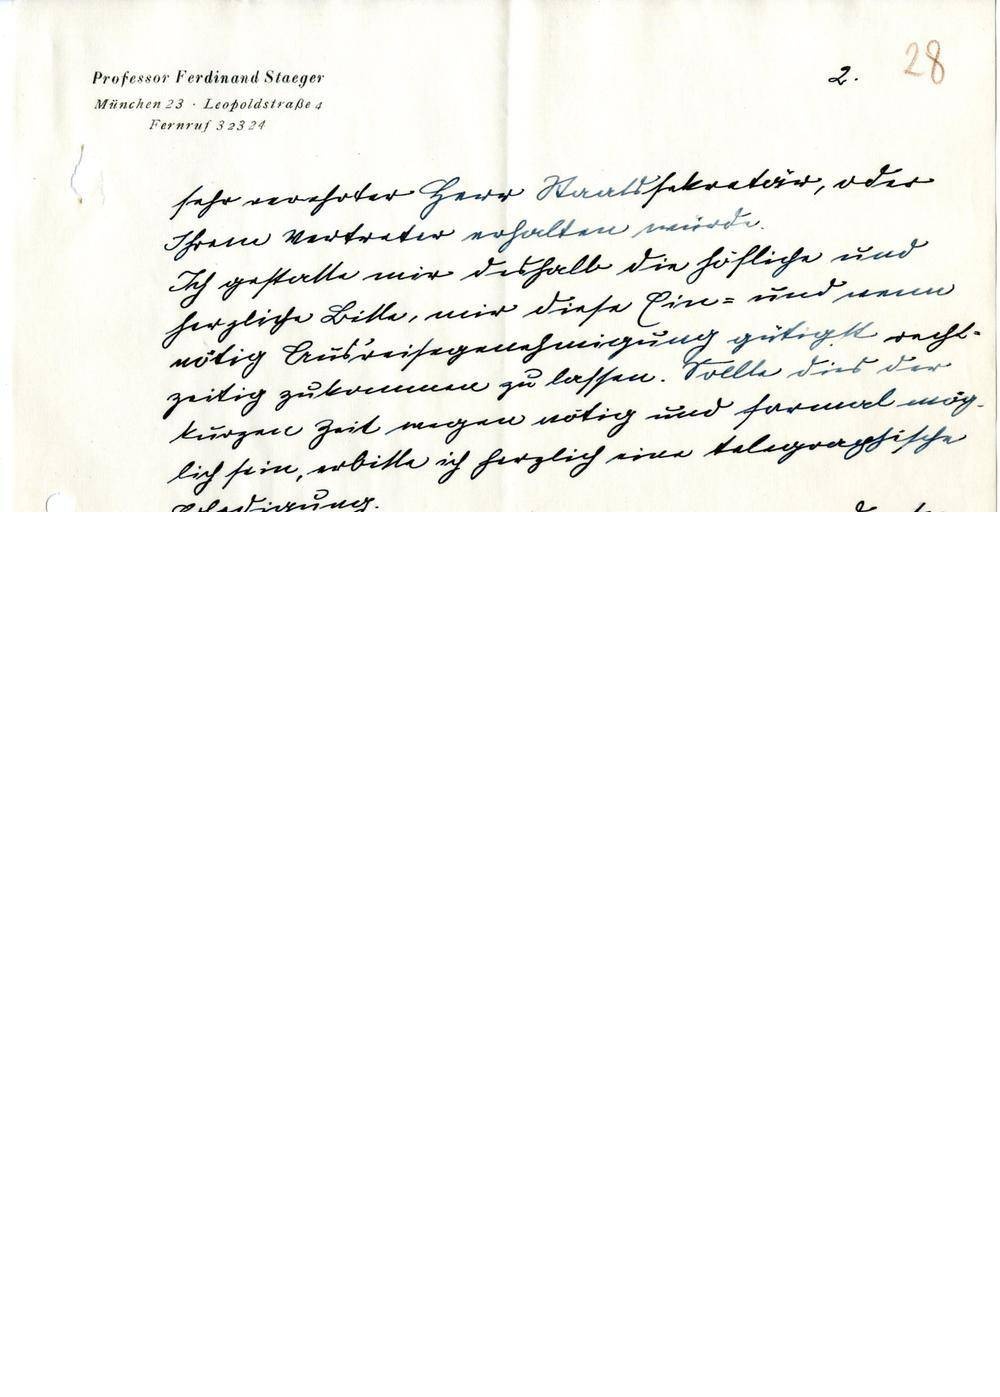 Professor Ferdinand Staeger
München 23 · Leopoldstraße 4
Fernruf 32324
2.
28
sehr verehrter Herr Staatssekretär, oder
Ihrem Vertreter erhalten würde.
Ich gestatte mir deshalb die höfliche und
herzliche Bitte, mir diese Ein= und wenn
nötig Ausreisegenehmigung gütigst recht-
zeitig zukommen zu lassen. Sollte dies der
kurzen Zeit wegen nötig und formal mög-
lich sein, erbitte ich herzlich eine telegraphische
Erledigung.